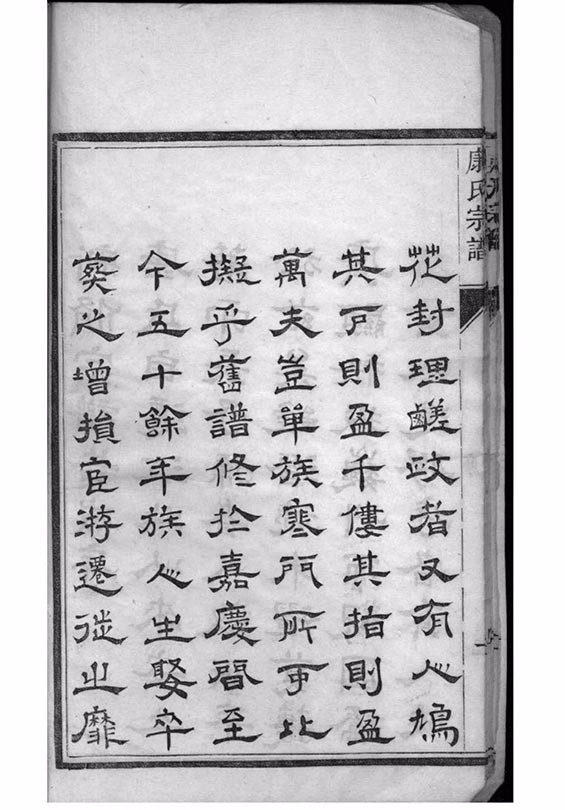 康氏宗譜
花封理鹺政者又有人鳩
其戶則盈千僂其指則盈
萬夫豈單族寒門所可比
擬乎舊譜修於嘉慶間至
今五十餘年族人生娶卒
葬之增損宦游遷徙之靡